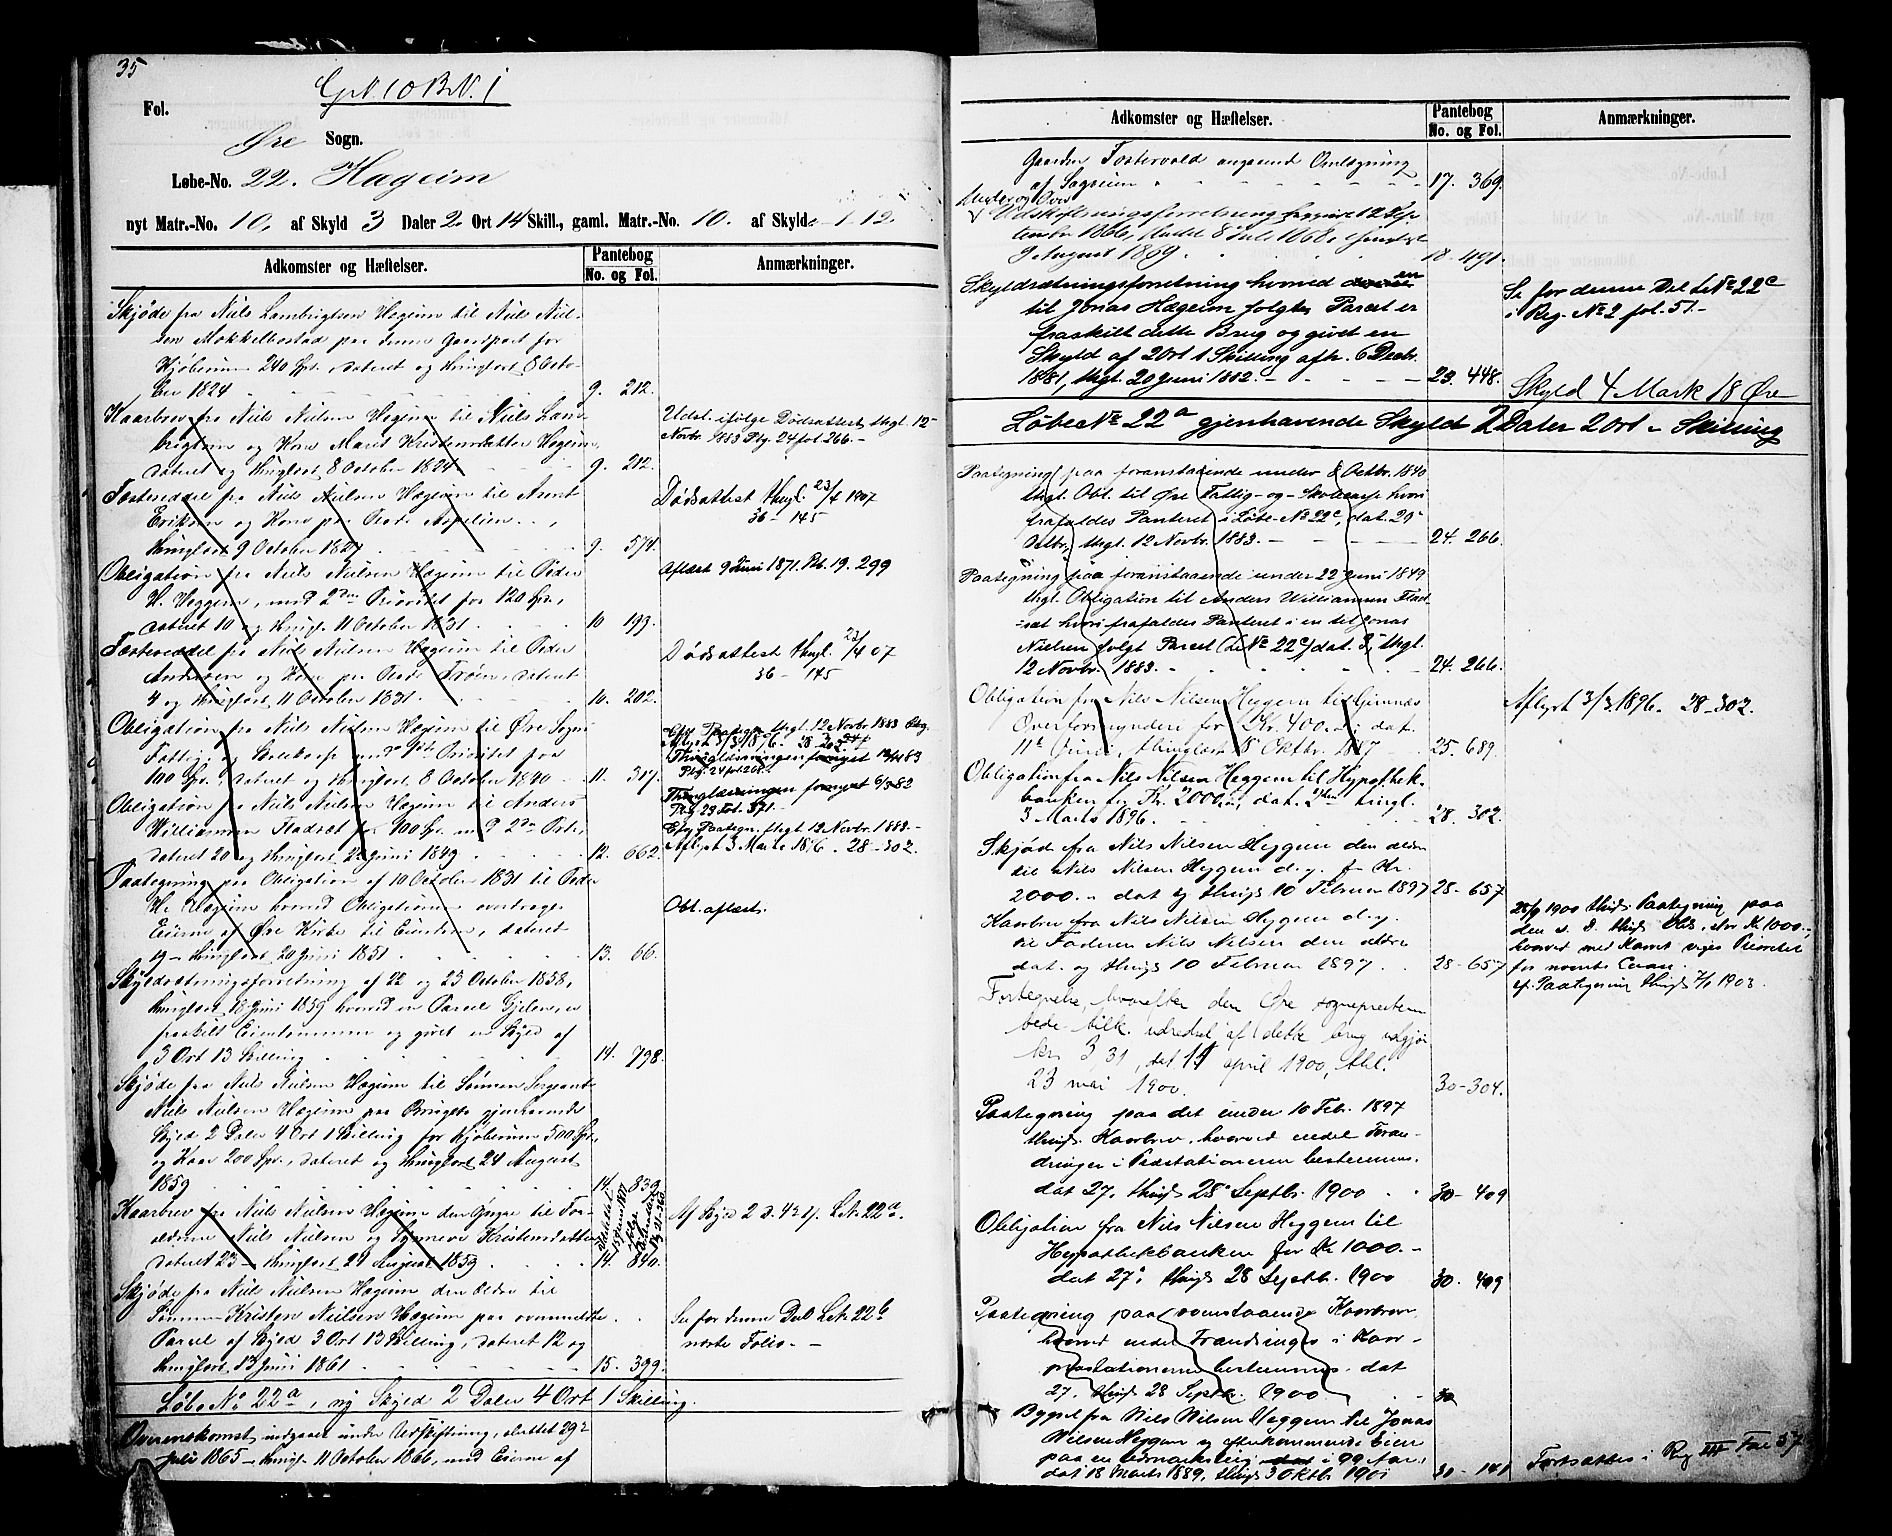 35
G.N. 10 B.N. 1
Fol.
Øre Sogn.
Løbe-No. 22. Hageim
nyt Matr.-No. 10, af Skyld 3 Daler 2 Ort 14 Skill., gaml. Matr.-No. 10. af Skyld - 1. 12.
Adkomster og Hæftelser. Pantebog No. og Fol. Anmærkninger.
Skjøde fra Niels Lambrigtsen Hægeim til Niels Niel-
sen Mokkelbostad paa denne Gaardpart for
Kjøbesum 240 Spd. dateret og thinglæst 8 Octo-
ber 1824 9. 212.
Kaarbrev fra Niels Nielsen Hægeim til Niels Lam-
brigtsen og Kone Marit Kristensdatter Hægeim,
dateret og thinglæst 8 October 1824 9. 212.
Udsl. ifølge Dødsattest thgl. 12-
Novbr. 1883 Pbg. 24 fol. 266.-
Fæsteseddel fra Niels Nielsen Hægeim til Arnt
Eriksen og Kone paa Plads Aspelien
thinglæst 9 October 1827 9. 574.
Dødsattest thgl. 23/4 1907
36 - 145
Obligation fra Niels Nielsen Hægeim til Peder
H. Heggem, med 2den Prioritet for 120 Spd.,
dateret 10 og thingl. 11 October 1831. 10 193.
Aflæst 9 Juni 1871. Pb. 19. 299
Fæsteseddel fra Niels Nielsen Hægeim til Peder
Andersen og Kone paa Plads Trøen, dateret
4 og thinglæst 11 October 1831. 10. 202.
Dødsattest thgl. 23/4 07
36 - 145
Obligation fra Niels Nielsen Hægeim til Øre Sogns
Fattig- og Skolekasse med 1ste Prioritet for
100 Spd., dateret og thinglæst 8 October 1840 11. 317.
Efg. Paategn. thgl. 12 Novbr. 1883 Pbg.
Aflyst 3/3 1896. 28-302.
Thinglæsningen fornyet 12/11 83
Pbg. 24 fol. 266.
Obligation fra Niels Nielsen Hægeim til Anders
Williamsen Fladsæt for 100 Spd. med 2den Prior.,
dateret 20 og thinglæst 22 Juni 1849 12. 662.
Thinglæsningen fornyet 6/3 82
Pbg. 23 fol. 371.
Efg. Paategn. thgl. 12 Novbr. 1883.-
Aflyst 3 Marts 1896. 28-302.
Paategning paa Obligation af 10 October 1831 til Peder
H. Hægeim hvorved Obligationen overdrages
Eierne af Øre Kirke til Eiendom, dateret
og thinglæst 20 Juni 1851 13. 66.
Obl. aflæst.
Skyldsætningsforretning af 22 og 23 October 1858,
thinglæst 18 Juni 1859 hvorved en Parcel Gjelen, er
fraskilt Eiendommen og givet en Skyld af
3 Ort 13 Skilling 14. 798.
Skjøde fra Niels Nielsen Hægeim til Sønnen Sergeant
Niels Nielsen Hægeim paa Brugets gjenhavende
Skyld 2 Daler 4 Ort 1 Skilling for Kjøbesum 500 Spd.,
og Kaar 200 Spd., dateret og thinglæst 24 August
1859 14. 839
Kaarbrev fra Niels Nielsen Hægeim den Yngre til For-
ældrene Niels Nielsen og Kristensdatter
dateret 23 - thinglæst 24 August 1859 14. 840.
Af Skyld 2 d. 4 o. 1 s. L.No 22a.
Skjøde fra Niels Nielsen Hægeim den Ældre til
Sønnen Kristen Nielsen Hægeim paa ovenmeldte
Parcel af Skyld 3 Ort 13 Skilling, dateret 12 og
thinglæst 13 Juni 1861 15. 399.
Se for denne Del L.No 22b
næste Folio. -
Løbe No 22a, ny Skyld 2 Daler 4 Ort 1 Skilling.
Overenskomst indgaaet under Udskiftning, sluttet 29de
Juli 1865 - thingl. 11 October 1866, med Eierne af
Adkomster og Hæftelser. Pantebog No. og Fol. Anmærkninger.
Gaarden Fostervold angaaende Omlægning
af 17. 369.
Udskiftningsforretning begyndt 12 Sep-
tember 1866, sluttet 8 Juli 1868, thinglæst
9 August 1869 18. 491.
Skyldsætningsforretning hvorved en
til Jonas Hægeim solgt Parcel er
fraskilt dette Brug og givet en
Skyld af 2 Ort 1 Skilling afh. 6 Decbr.
1881, thgl. 20 Juni 1882. - 23. 448.
Se for denne Del L.No 22c
i Reg. No 2 fol. 51.-
Skyld 4 Mark 18 Øre
Løbe No 22a gjenhavende Skyld 2 Daler 2 Ort - Skilling
Paategning paa foranstaaende under 8 Octbr. 1840
thgl. Obl. til Øre Fattig- og Skolecasse hvori
frafaldes Panteret i Løbe-No 22c, dat. 29
Octbr., thgl. 12 Novbr. 1883. - 24. 266.
Paategning paa foranstaaende under 22 Juni 1849
thgl. Obligation til Anders Williamsen Flad-
sæt hvori frafaldes Panteret i en til Jonas
Nielsen solgt Parcel (L.No 22c) dat. 3, thgl.
12 Novbr. 1883. - 24. 266.
Obligation fra Nils Nilsen Heggem til Gimnæs
Overformynderi for Kr. 400.- dat.
11te Juni, thinglæst 8 Oktbr. 1887 25. 689.
Aflyst 3/3 1896. 28-302.
Obligation fra Nils Nilsen Heggem til Hypothek-
banken for Kr. 2000.-, dat. 2den thgl.
3 Marts 1896. 28. 302.
Skjøde fra Nils Nilsen Heggem den ældre
til Nils Nilsen Heggem d. y. for Kr.
2000.- dat. og thgl. 10 Februar 1897 28-657
Kaarbrev fra Nils Nilsen Heggem d. y.
til Faderen Nils Nilsen den ældre
dat. og thgl. 10 Februar 1897 28-657
28/9 1900 thgl. Paategning paa
den s. D. thgl. Obl. stor Kr. 1000.-,
hvorved med Kaaret viges Prioritet
for nævnte Laan.
cf. Paategning thgl. 7/1 1903.
Fortegnelse, hvorefter den Øre sogneprestem-
bede tilk. udredsel af dette brug udgjør
kr. 3,31, dat. april 1900, thl.
23 mai 1900. 30-304.
Paategning paa det under 10 Febr. 1897
thgl. Kaarbrev, hvorved endel Foran-
dringer i Præstationerne bestemmes.
dat. 27. thgl. 28 Septbr. 1900 30-409
Obligation fra Nils Nilsen Heggem til
Hypothekbanken for Kr. 1000.-
dat. 27. thgl. 28 Septbr. 1900 30. 409
Paategning paa ovenstaaende Kaarbrev
hvorved endel Forandringer i Kaar-
præstationerne bestemmes. dat.
27. thgl. 28 Septbr. 1900 30
Bygsel fra Nils Nilsen Heggem til Jonas
Nilsen Heggem og efterkommende Eiere
paa en i 99 Aar,
dat. 18 Marts 1889, thgl. 3 Oktbr. 1901 31 - 141
Fortsættes i Reg. III Fol. 57